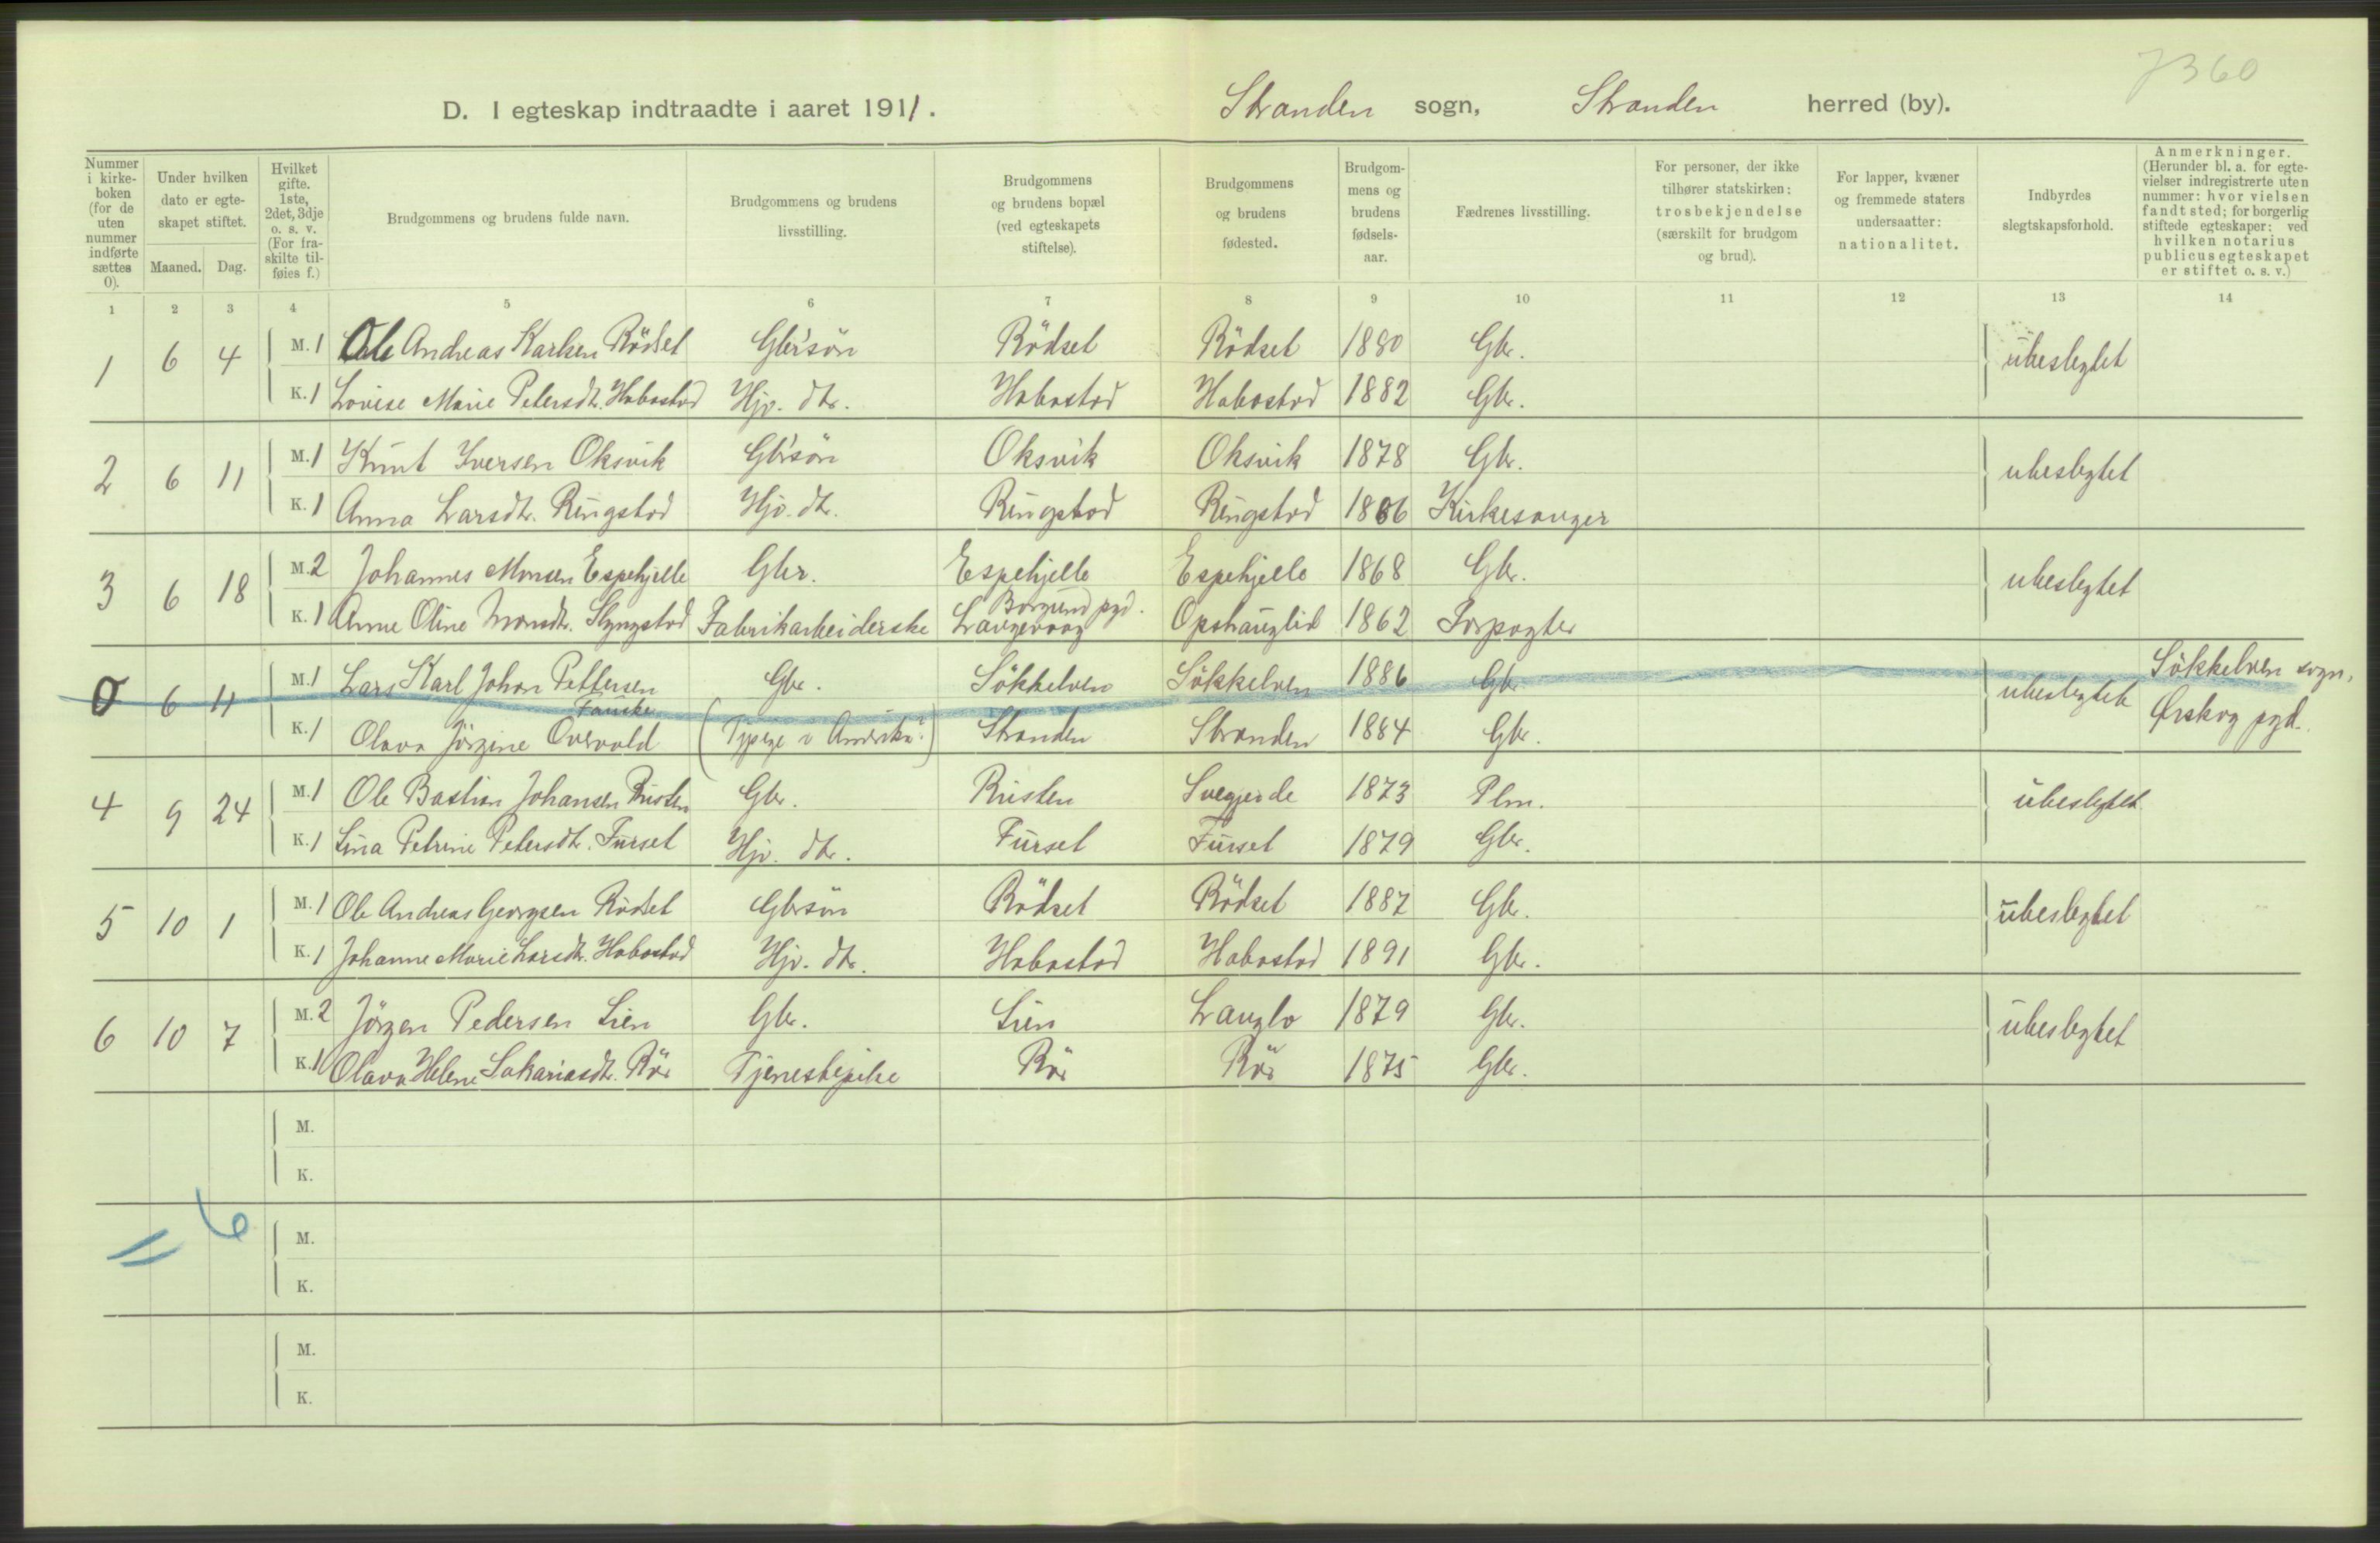 7360
D. I egteskap indtraadte i aaret 1911. Stranden sogn, Stranden herred (by).
Nummer i kirkeboken (for de uten nummer indførte sættes 0). Under hvilken dato er egteskapet stiftet. Maaned. Dag. Hvilket gifte. 1ste, 2det, 3dje o. s. v. (For fraskilte tilføies f.) Brudgommens og brudens fulde navn. Brudgommens og brudens livsstilling. Brudgommens og brudens bopæl (ved egteskapets stiftelse). Brudgommens og brudens fødested. Brudgommens og brudens fødselsaar. Fædrenes livsstilling. For personer, der ikke tilhører statskirken: trosbekjendelse (særskilt for brudgom og brud). For lapper, kvæner og fremmede staters undersaatter: nationalitet. Indbyrdes slegtskapsforhold. Anmerkninger. (Herunder bl. a. for egtevielser indregistrerte uten nummer: hvor vielsen fandt sted; for borgerlig stiftede egteskaper: ved hvilken notarius publicus egteskapet er stiftet o. s. v.)
1 2 3 4 5 6 7 8 9 10 11 12 13 14
1 6 4 M. 1 Ole Andreas Karlsen Rödset Gbr'sön Rödset Rödset 1880 Gbr. ubeslegtet
K. 1 Lovise Marie Petersdtr. Habostad Hjv. dtr. Habostad Habostad 1882 Gbr.
2 6 11 M. 1 Knut Iversen Oksvik Gb'rsön Oksvik Oksvik 1878 Gbr. ubeslegtet
K. 1 Anna Larsdtr. Ringstad Hjv. dtr. Ringstad Ringstad 1886 Kirkesanger
3 6 18 M. 2 Johannes Monsen Espehjelle Gbr. Espehjelle Espehjelle 1868 Gbr. ubeslegtet
K. 1 Anne Oline Slyngstad Fabrikarbeiderske Langevaag Borgund pgd. Opshauglid 1862 Forpagter
0 6 11 M. 1 Lars Karl Johan Pettersen Fauske Gbr. Sökkelven Sökkelven 1886 Gbr. ubeslegtet Sökkelven sogn, Ørskog pgd.
K. 1 Olava Jörgine Overvold (Tj.pige i Amerika?) Stranden Stranden 1884 Gbr.
4 9 24 M. 1 Ole Bastian Johansen Rusten Gbr. Rusten Svegjerde 1873 Plm. ubeslegtet
K. 1 Lina Petrine Petersdtr. Furset Hjv. dtr. Furset Furset 1879 Gbr.
5 10 1 M. 1 Ole Andreas Georgsen Rödset Gbrsön Rödset Rödset 1887 Gbr. ubeslegtet
K. 1 Johanne Marie Larsdtr. Habostad Hjv. dtr. Habostad Habostad 1891 Gbr.
6 10 7 M. 2 Jörgen Pedersen Lien Gbr. Lien Langlo 1879 Gbr. ubeslegtet
K. 1 Olava Helene Sakariasdtr. Rör Tjenestepike Rör Rör 1875 Gbr.
M.
K.
6
M.
K.
M.
K.